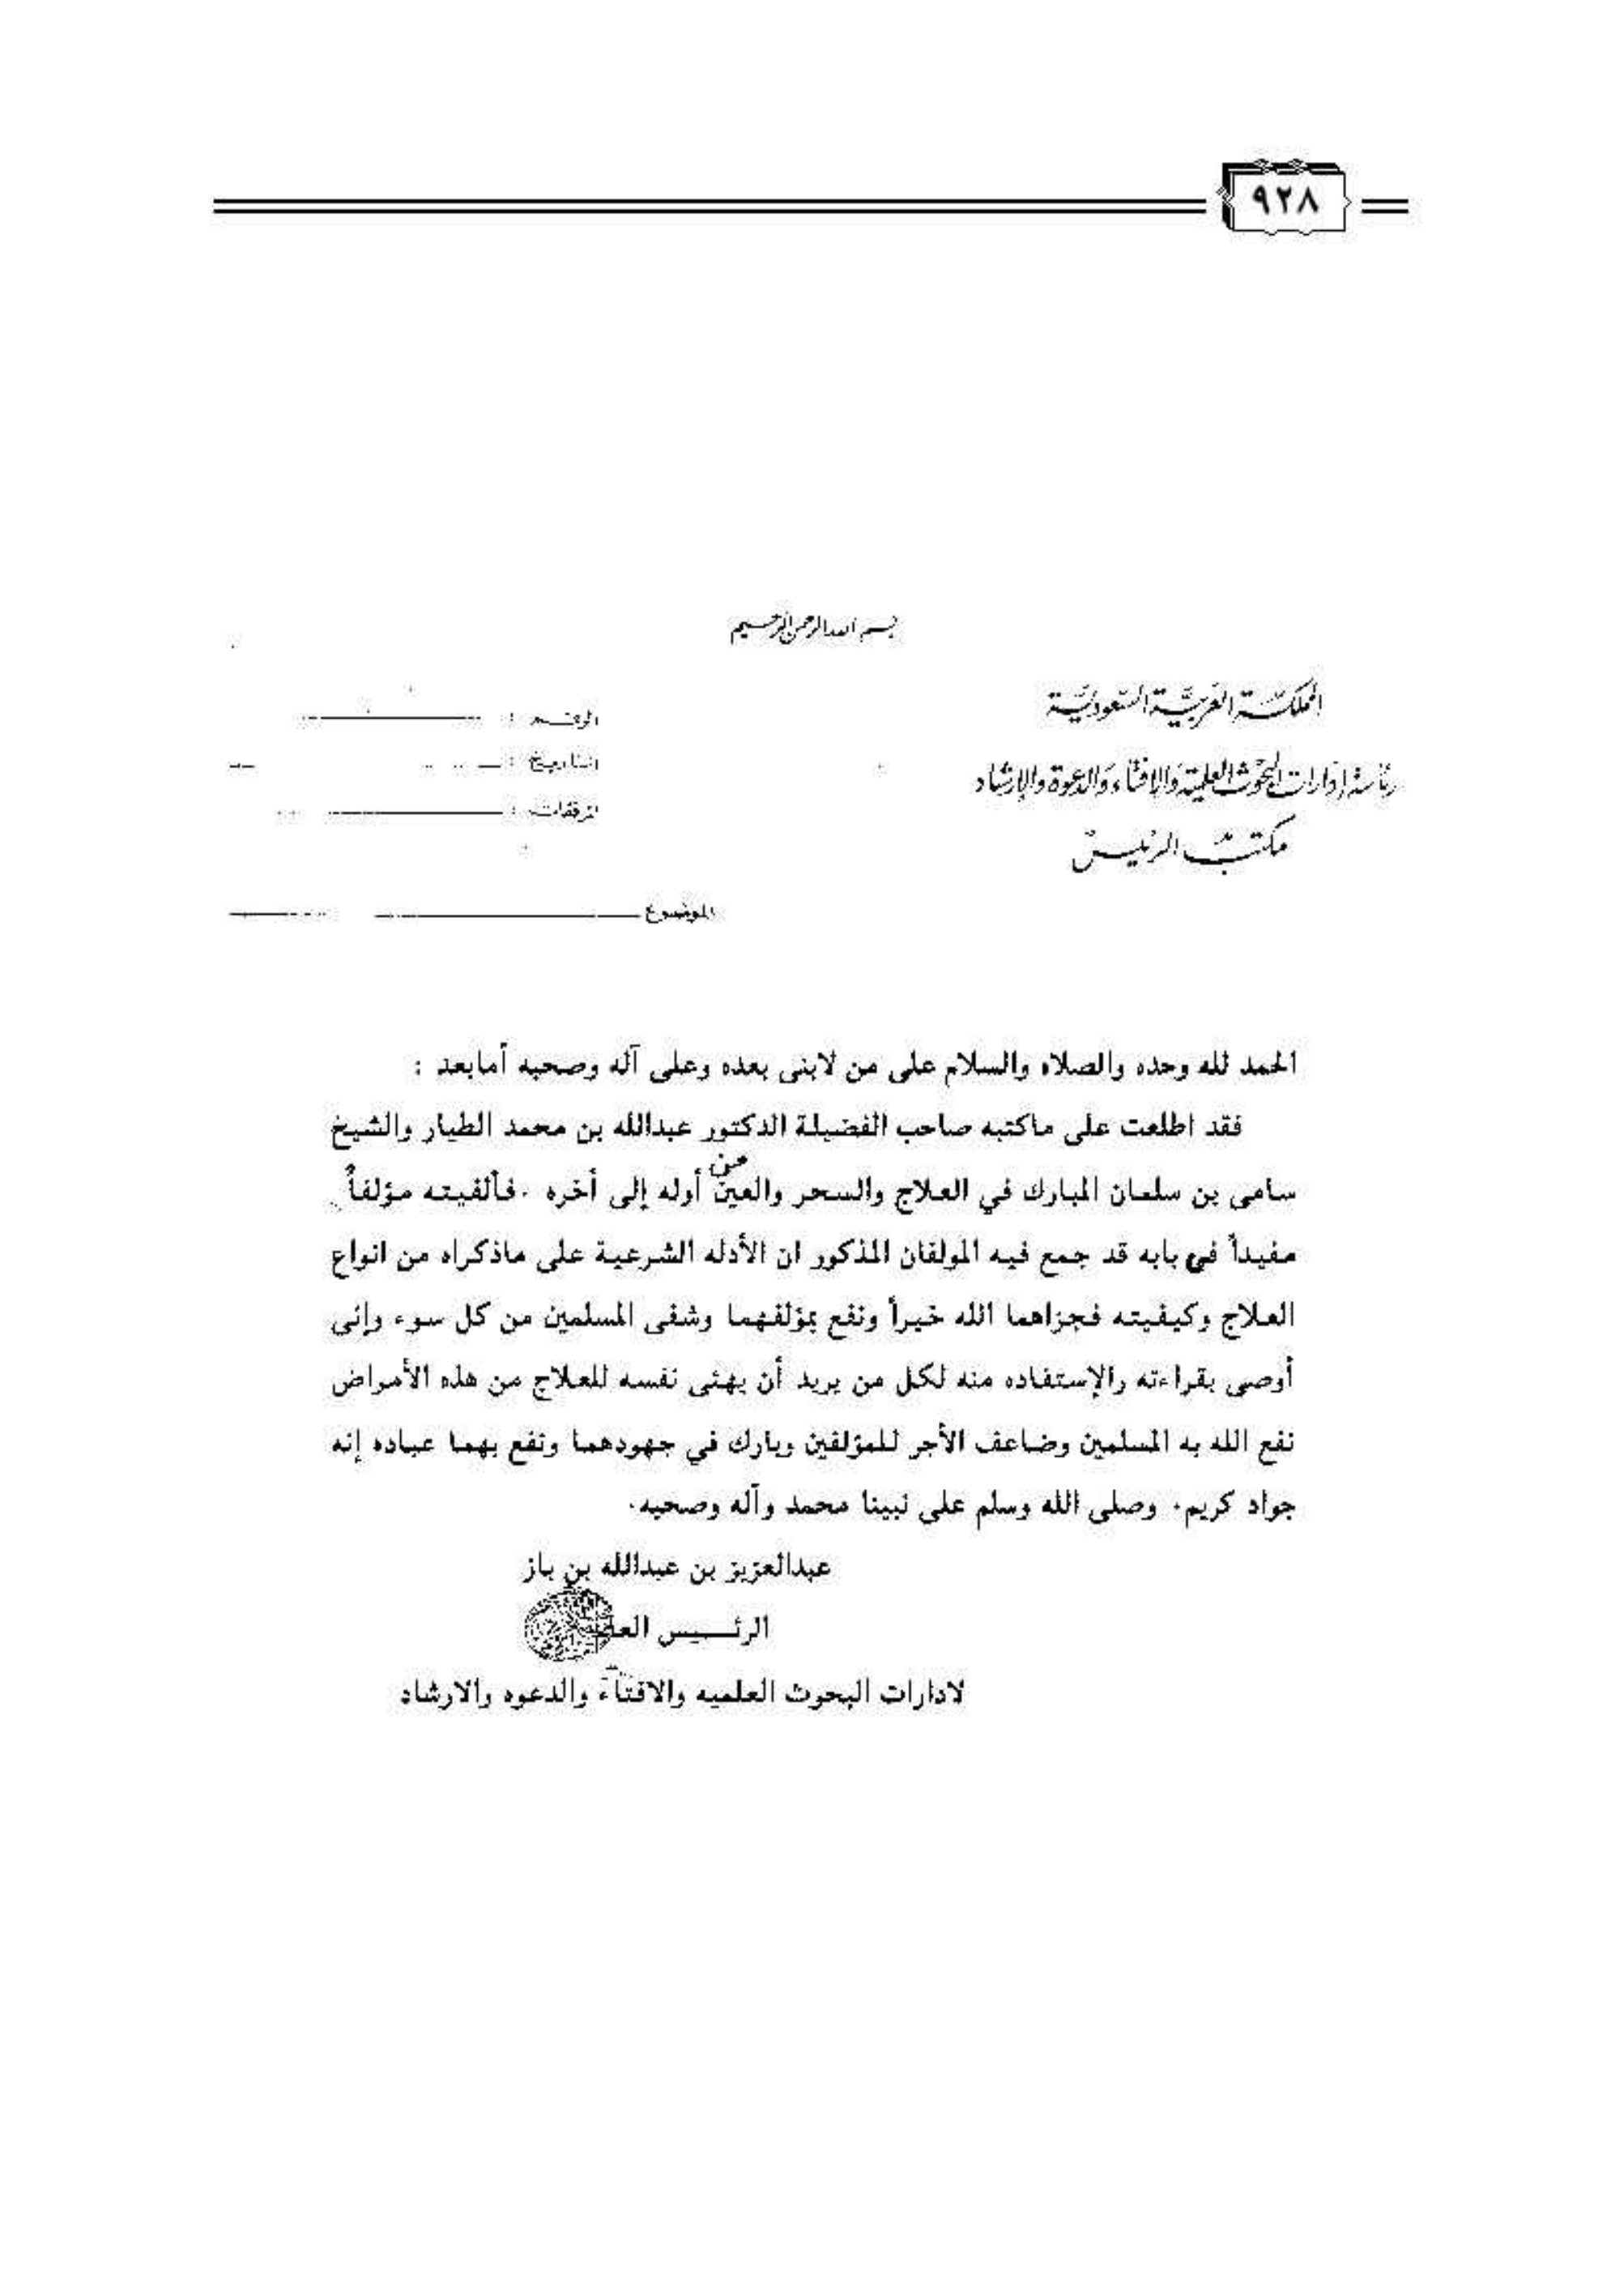 ٩٢٨
بسم الله الرحمن الرحيم
المملكة العربية السعودية
رئاسة إدارات البحوث العلمية والافتاء والدعوة والإرشاد
مكتب الرئيس
الرقم :
التاريخ :
المرفقات :
الموضوع
الحمد لله وحده والصلاه والسلام على من لانبى بعده وعلى آله وصحبه أمابعد :
فقد اطلعت على ماكتبه صاحب الفضيلة الدكتور عبدالله بن محمد الطيار والشيخ
سامى بن سلمان المبارك في العلاج والسحر والعين من أوله إلى أخره . فألفيته مؤلفاً
مفيداً في بابه قد جمع فيه المولفان المذكور ان الأدله الشرعية على ماذكراه من انواع
العلاج وكيفيته فجزاهما الله خيراً ونفع بمؤلفهما وشفى المسلمين من كل سوء وإنى
أوصى بقراءته والإستفاده منه لكل من يريد أن يهئى نفسه للعلاج من هذه الأمراض
نفع الله به المسلمين وضاعف الأجر للمؤلفين وبارك في جهودهما ونفع بهما عباده إنه
جواد كريم. وصلى الله وسلم على نبينا محمد وآله وصحبه.
عبدالعزيز بن عبدالله بن باز
الرئــيس العام
لادارات البحوث العلميه والافتاء والدعوه والارشاد